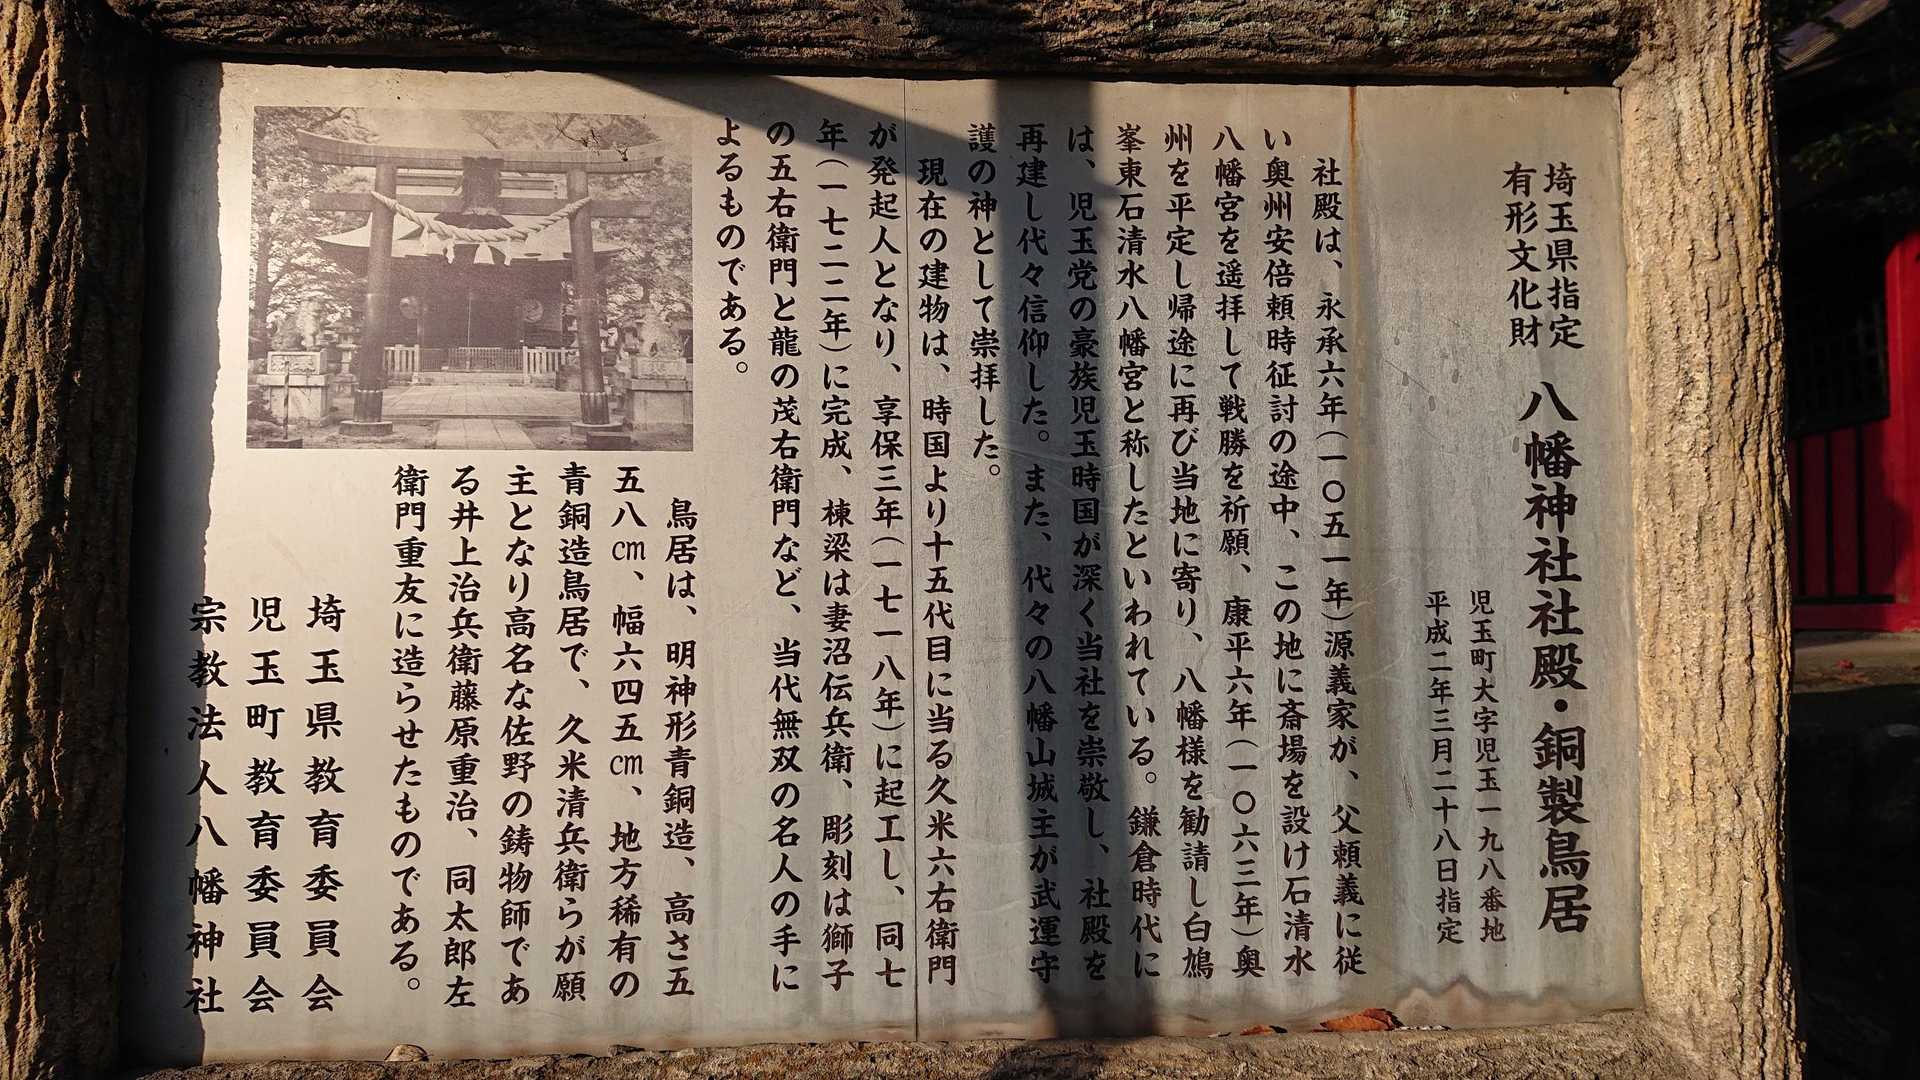 埼玉県指定
有形文化財
八幡神社社殿・銅製鳥居
児玉町大字児玉一九八番地
平成二年三月二十八日指定
社殿は、永承六年(一〇五一年)源義家が、父頼義に従
い奥州安倍頼時征討の途中、この地に斎場を設け石清水
八幡宮を遥拝して戦勝を祈願、康平六年(一〇六三年)奥
州を平定し帰途に再び当地に寄り、八幡様を勧請し白鳩
峯東石清水八幡宮と称したといわれている。鎌倉時代に
は、児玉党の豪族児玉時国が深く当社を崇敬し、社殿を
再建し代々信仰した。また、代々の八幡山城主が武運守
護の神として崇拝した。
現在の建物は、時国より十五代目に当る久米六右衛門
が発起人となり、享保三年(一七一八年)に起工し、同七
年(一七二二年)に完成、棟梁は妻沼伝兵衛、彫刻は獅子
の五右衛門と龍の茂右衛門など、当代無双の名人の手に
よるものである。
鳥居は、明神形青銅造、高さ五
五八㎝、幅六四五㎝、地方稀有の
青銅造鳥居で、久米清兵衛らが願
主となり高名な佐野の鋳物師であ
る井上治兵衛藤原重治、同太郎左
衛門重友に造らせたものである。
埼玉県教育委員会
児玉町教育委員会
宗教法人八幡神社